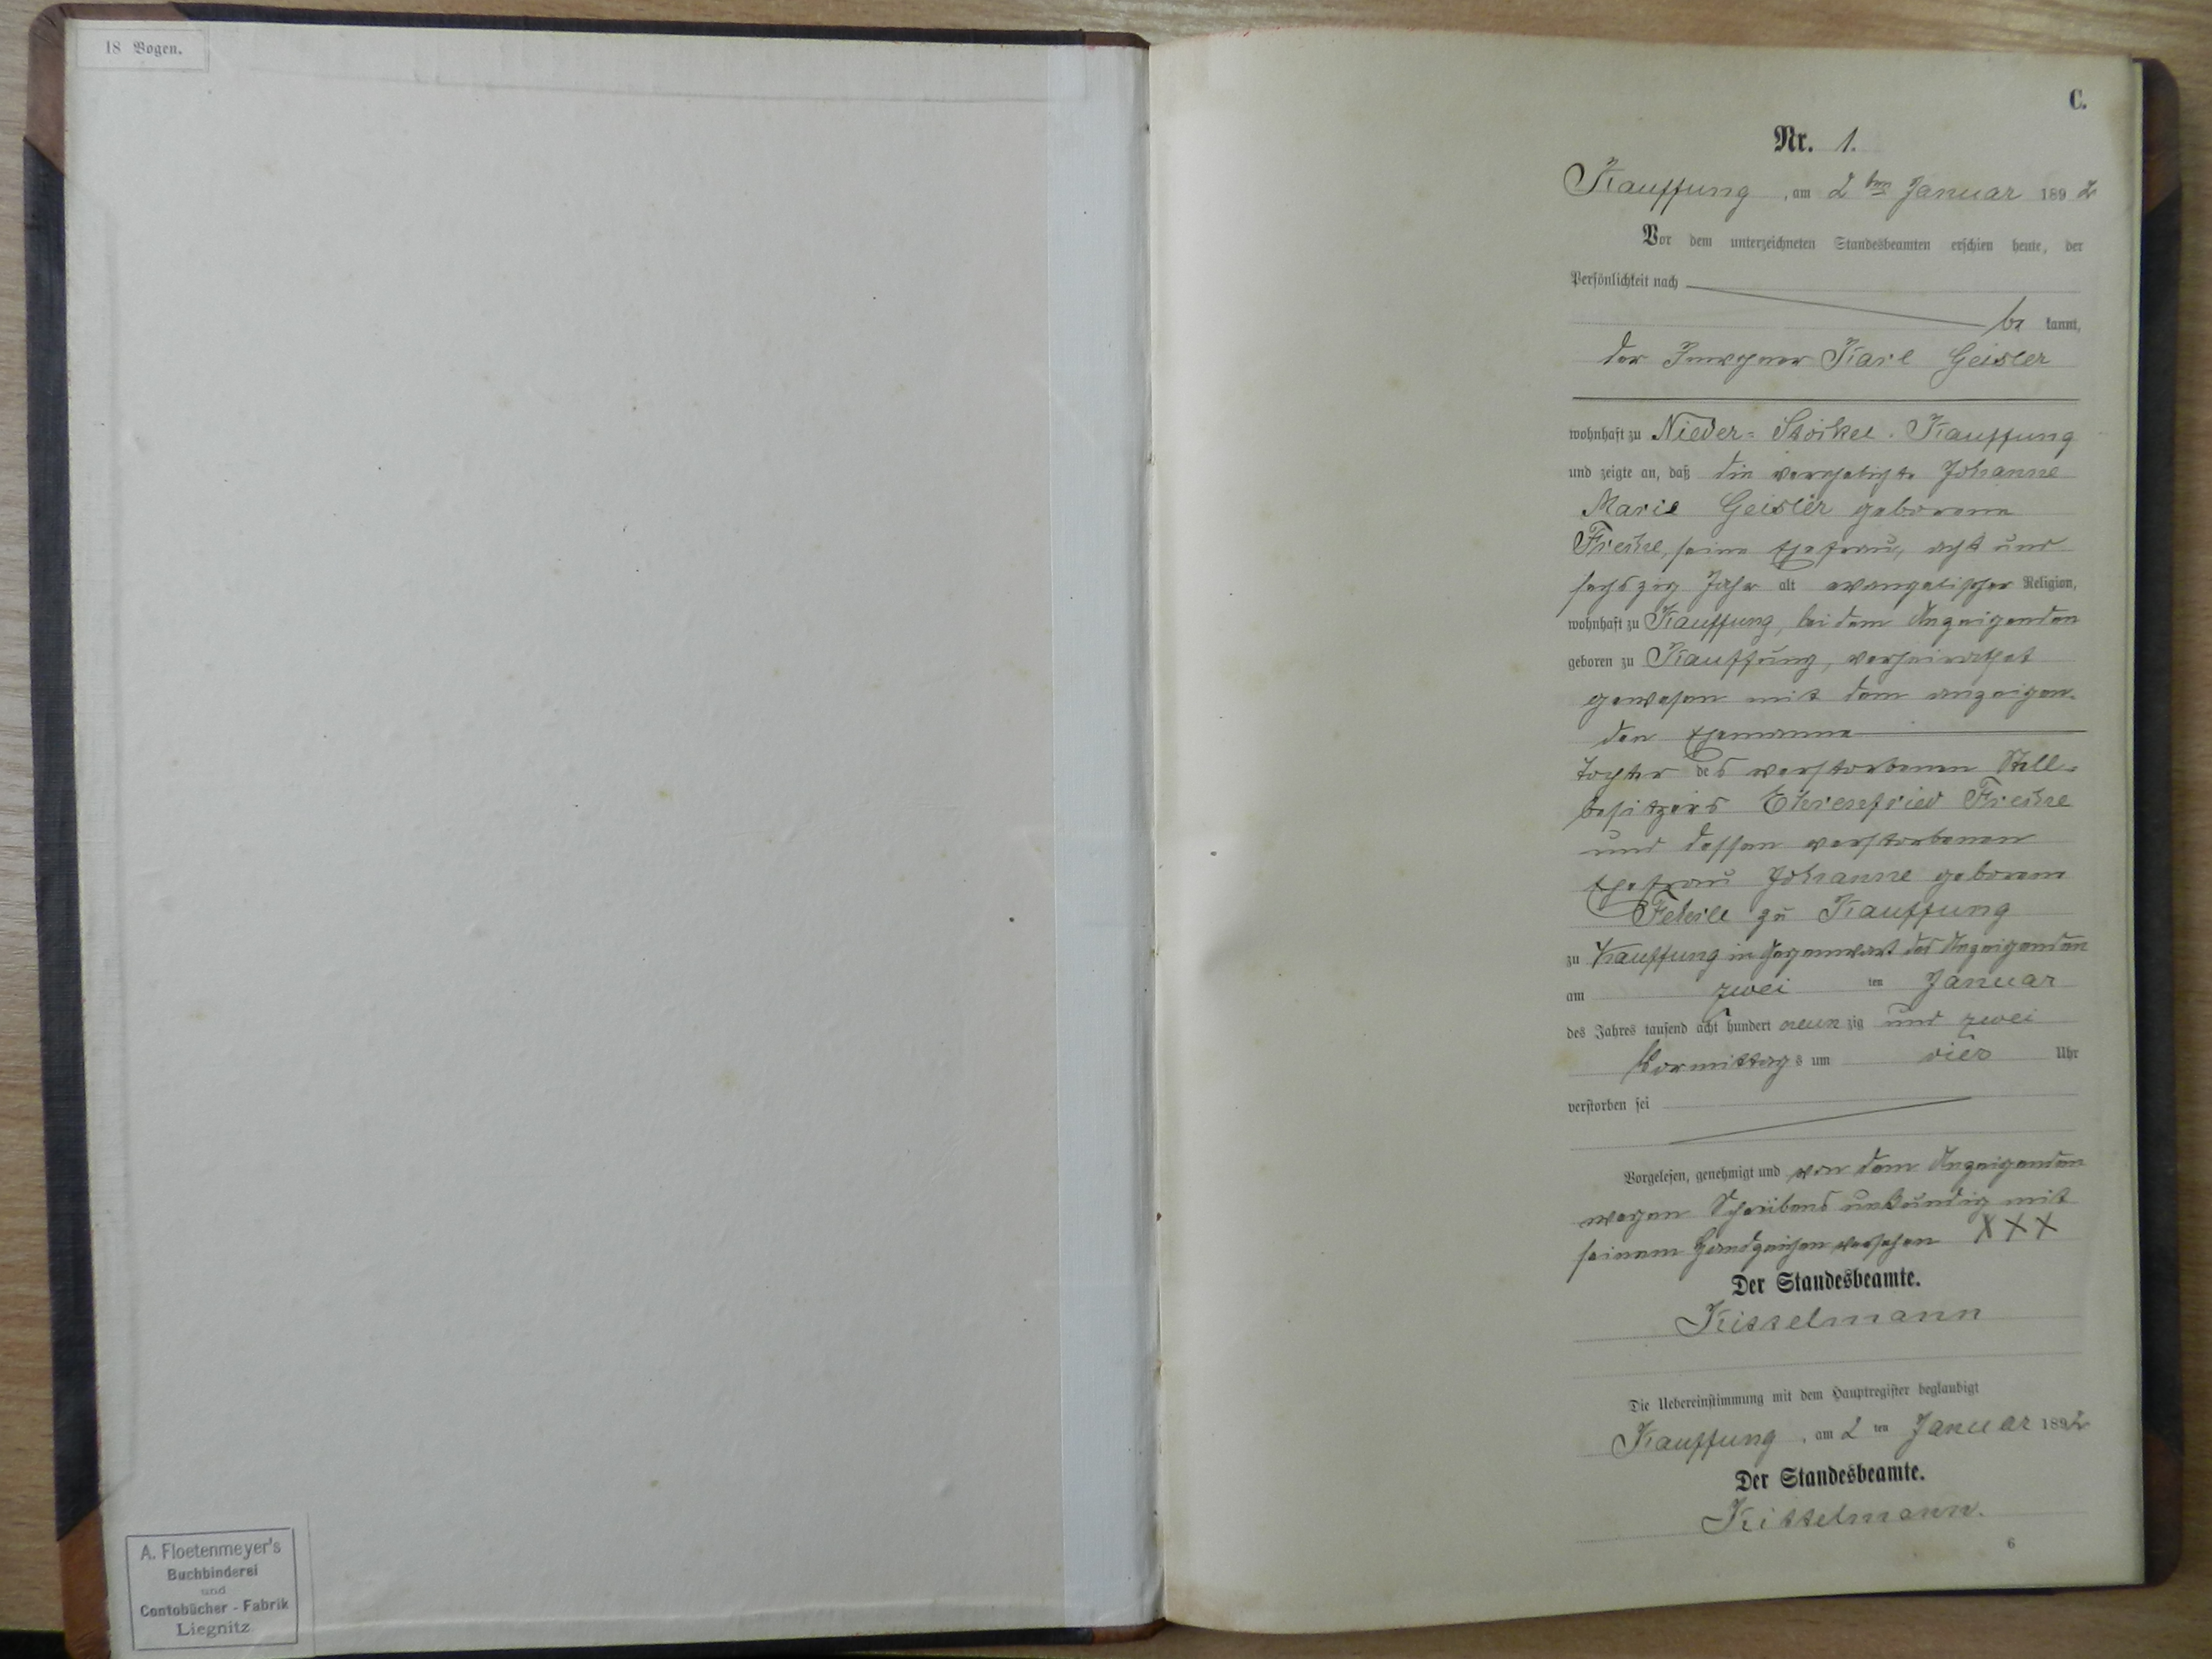 18 Bogen.
A. Floetenmeyer's
Buchbinderei
und
Contobücher - Fabrik
Liegnitz
C.
Nr. 1.
Kauffung, am 2ten Januar 1892
Vor dem unterzeichneten Standesbeamten erschien heute, der
Persönlichkeit nach
be kannt,
der Inwohner Karl Geisler
wohnhaft zu Nieder-Stöckel-Kauffung
und zeigte an, daß die verehelichte Johanne
Marie Geisler geborene
seine Ehefrau, acht und
sechszig Jahr alt evangelischer Religion,
wohnhaft zu Kauffung, bei dem Anzeigenden
geboren zu Kauffung, verheirathet
gewesen mit dem anzeigen-
den Ehemanne
Tochter des verstorbenen Stell-
besitzers Ehrenfried
und dessen verstorbenen
Ehefrau Johanne geborene
zu Kauffung
zu Kauffung in Gegenwart des Anzeigenden
am zwei ten Januar
des Jahres tausend acht hundert neun zig und zwei
Vormittags um vier Uhr
verstorben sei
Vorgelesen, genehmigt und von dem Anzeigenden
wegen Schreibens unkundig mit
seinem Handzeichen versehen XXX
Der Standesbeamte.
Kisselmann
Die Uebereinstimmung mit dem Hauptregister beglaubigt
Kauffung, am 2 ten Januar 1892
Der Standesbeamte.
Kisselmann.
6